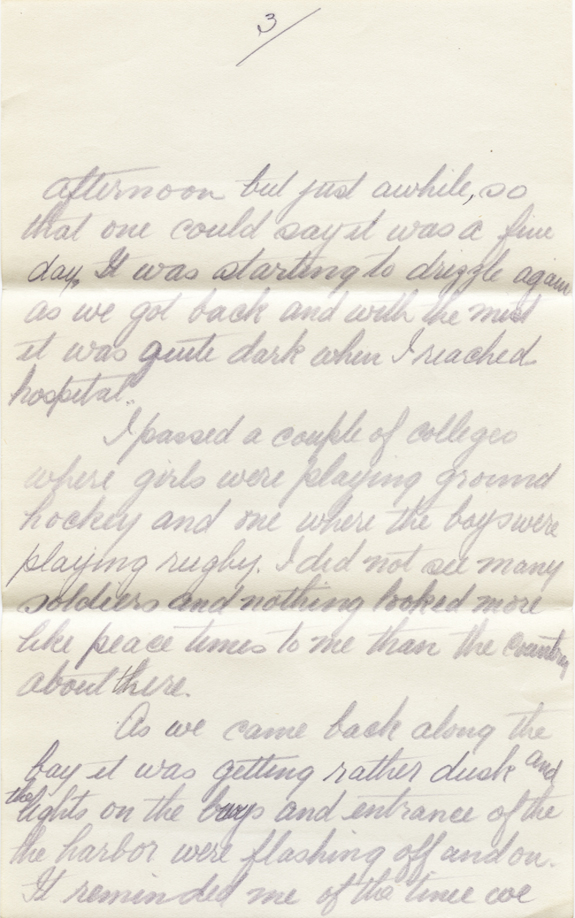 3
afternoon but just awhile, so
that one could say it was a fine
day. It was starting to drizzle again
as we got back and with the mist
it was quite dark when I reached
hospital.
I passed a couple of colleges
where girls were playing ground
hockey and one where the boys were
playing rugby. I did not see many
soldiers and nothing looked more
like peace times to me than the country
about here.
As we came back along the
bay it was getting rather dusk and
the lights on the buoys and entrance of the
the harbor were flashing off and on.
It reminded me of the time we